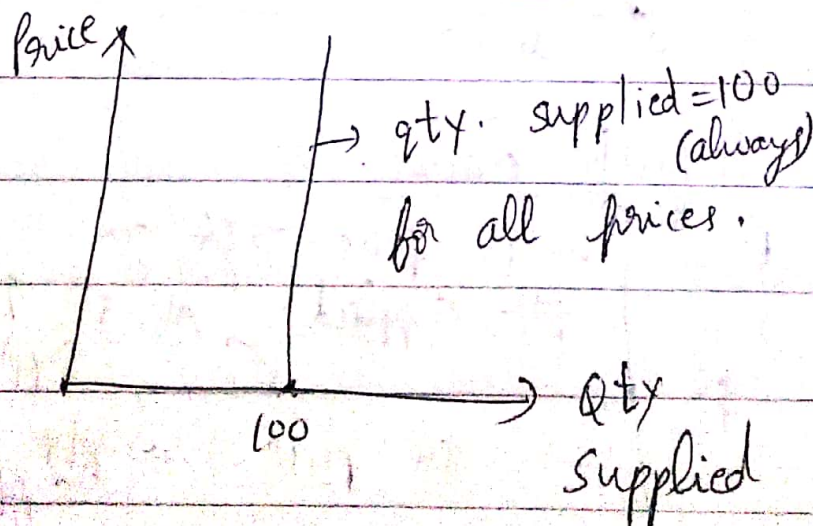 Price
→ qty. supplied=100
(always)
for all prices.
100
Qty
supplied